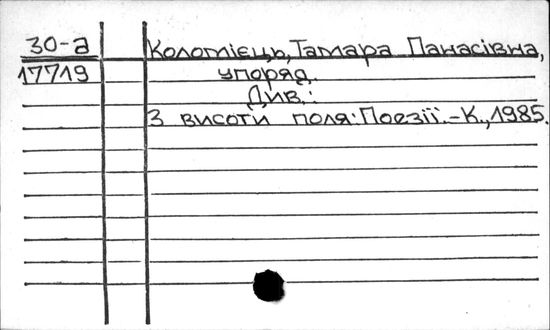 30-а
Коломієць, Тамара Панасівна,
17719
упоряд.
Див.:
З висоти поля: Поезії.-К., 1985.